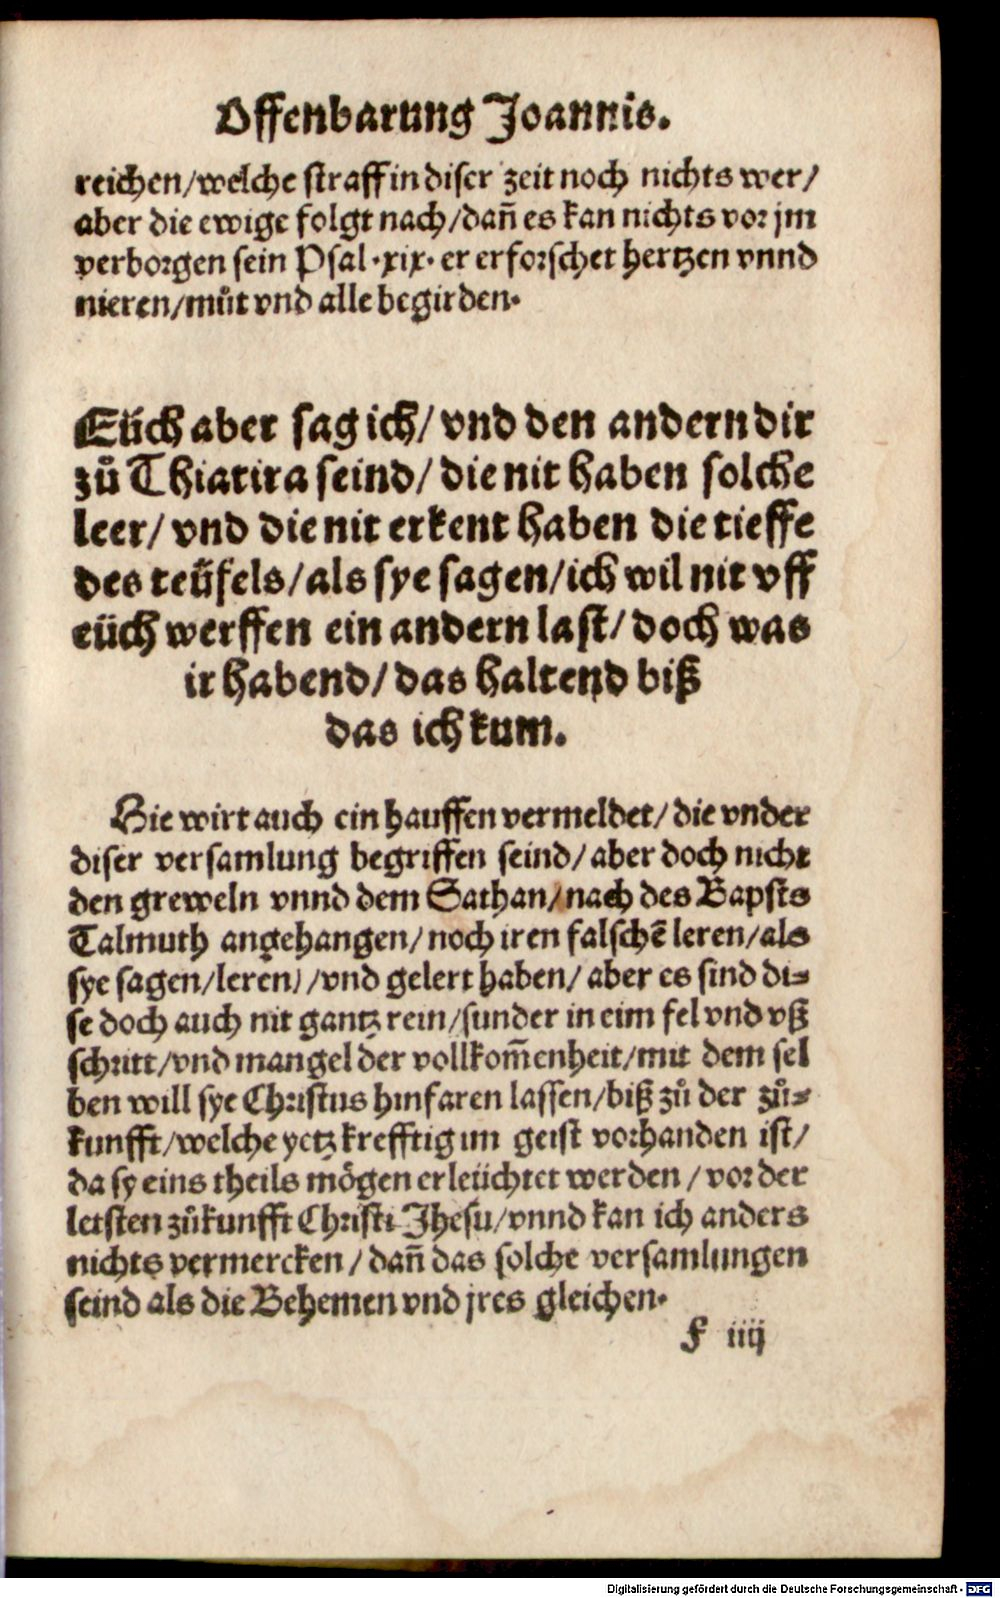 Offenbarung Joannis.
reichen/welche straff in diser zeit noch nichts wer/
aber die ewige folgt nach/dañ es kan nichts vor jm
verborgen sein Psal.xix. er erforschet hertzen vnnd
nieren/můt vnd alle begirden.
Eüch aber sag ich/ vnd den andern dir
zů Thiatira seind/ die nit haben solche
leer/ vnd die nit erkent haben die tieffe
des teüfels/als sye sagen/ich wil nit vff
eüch werffen ein andern last/ doch was
ir habend/ das haltend biß
das ich kum.
Hie wirt auch ein hauffen vermeldet/ die vnder
diser versamlung begriffen seind/ aber doch nicht
den greweln vnnd dem Sathan/nach des Bapsts
Talmuth angehangen/ noch iren falschẽ leren/als
sye sagen/leren)/vnd gelert haben/ aber es sind di⸗
se doch auch nit gantz rein/sunder in eim fel vnd vß
schritt/vnd mangel der vollkom̃enheit/mit dem sel
ben will sye Christus hinfaren lassen/biß zů der zů⸗
kunfft/welche yetz krefftig im geist vorhanden ist/
da sy eins theils mögen erleüchtet werden / vor der
letsten zůkunfft Christi Jhesu/vnnd kan ich anders
nichts vermercken / dañ das solche versamlungen
seind als die Behemen vnd jres gleichen.
F iiij
Digitalisierung gefördert durch die Deutsche Forschungsgemeinschaft - DFG